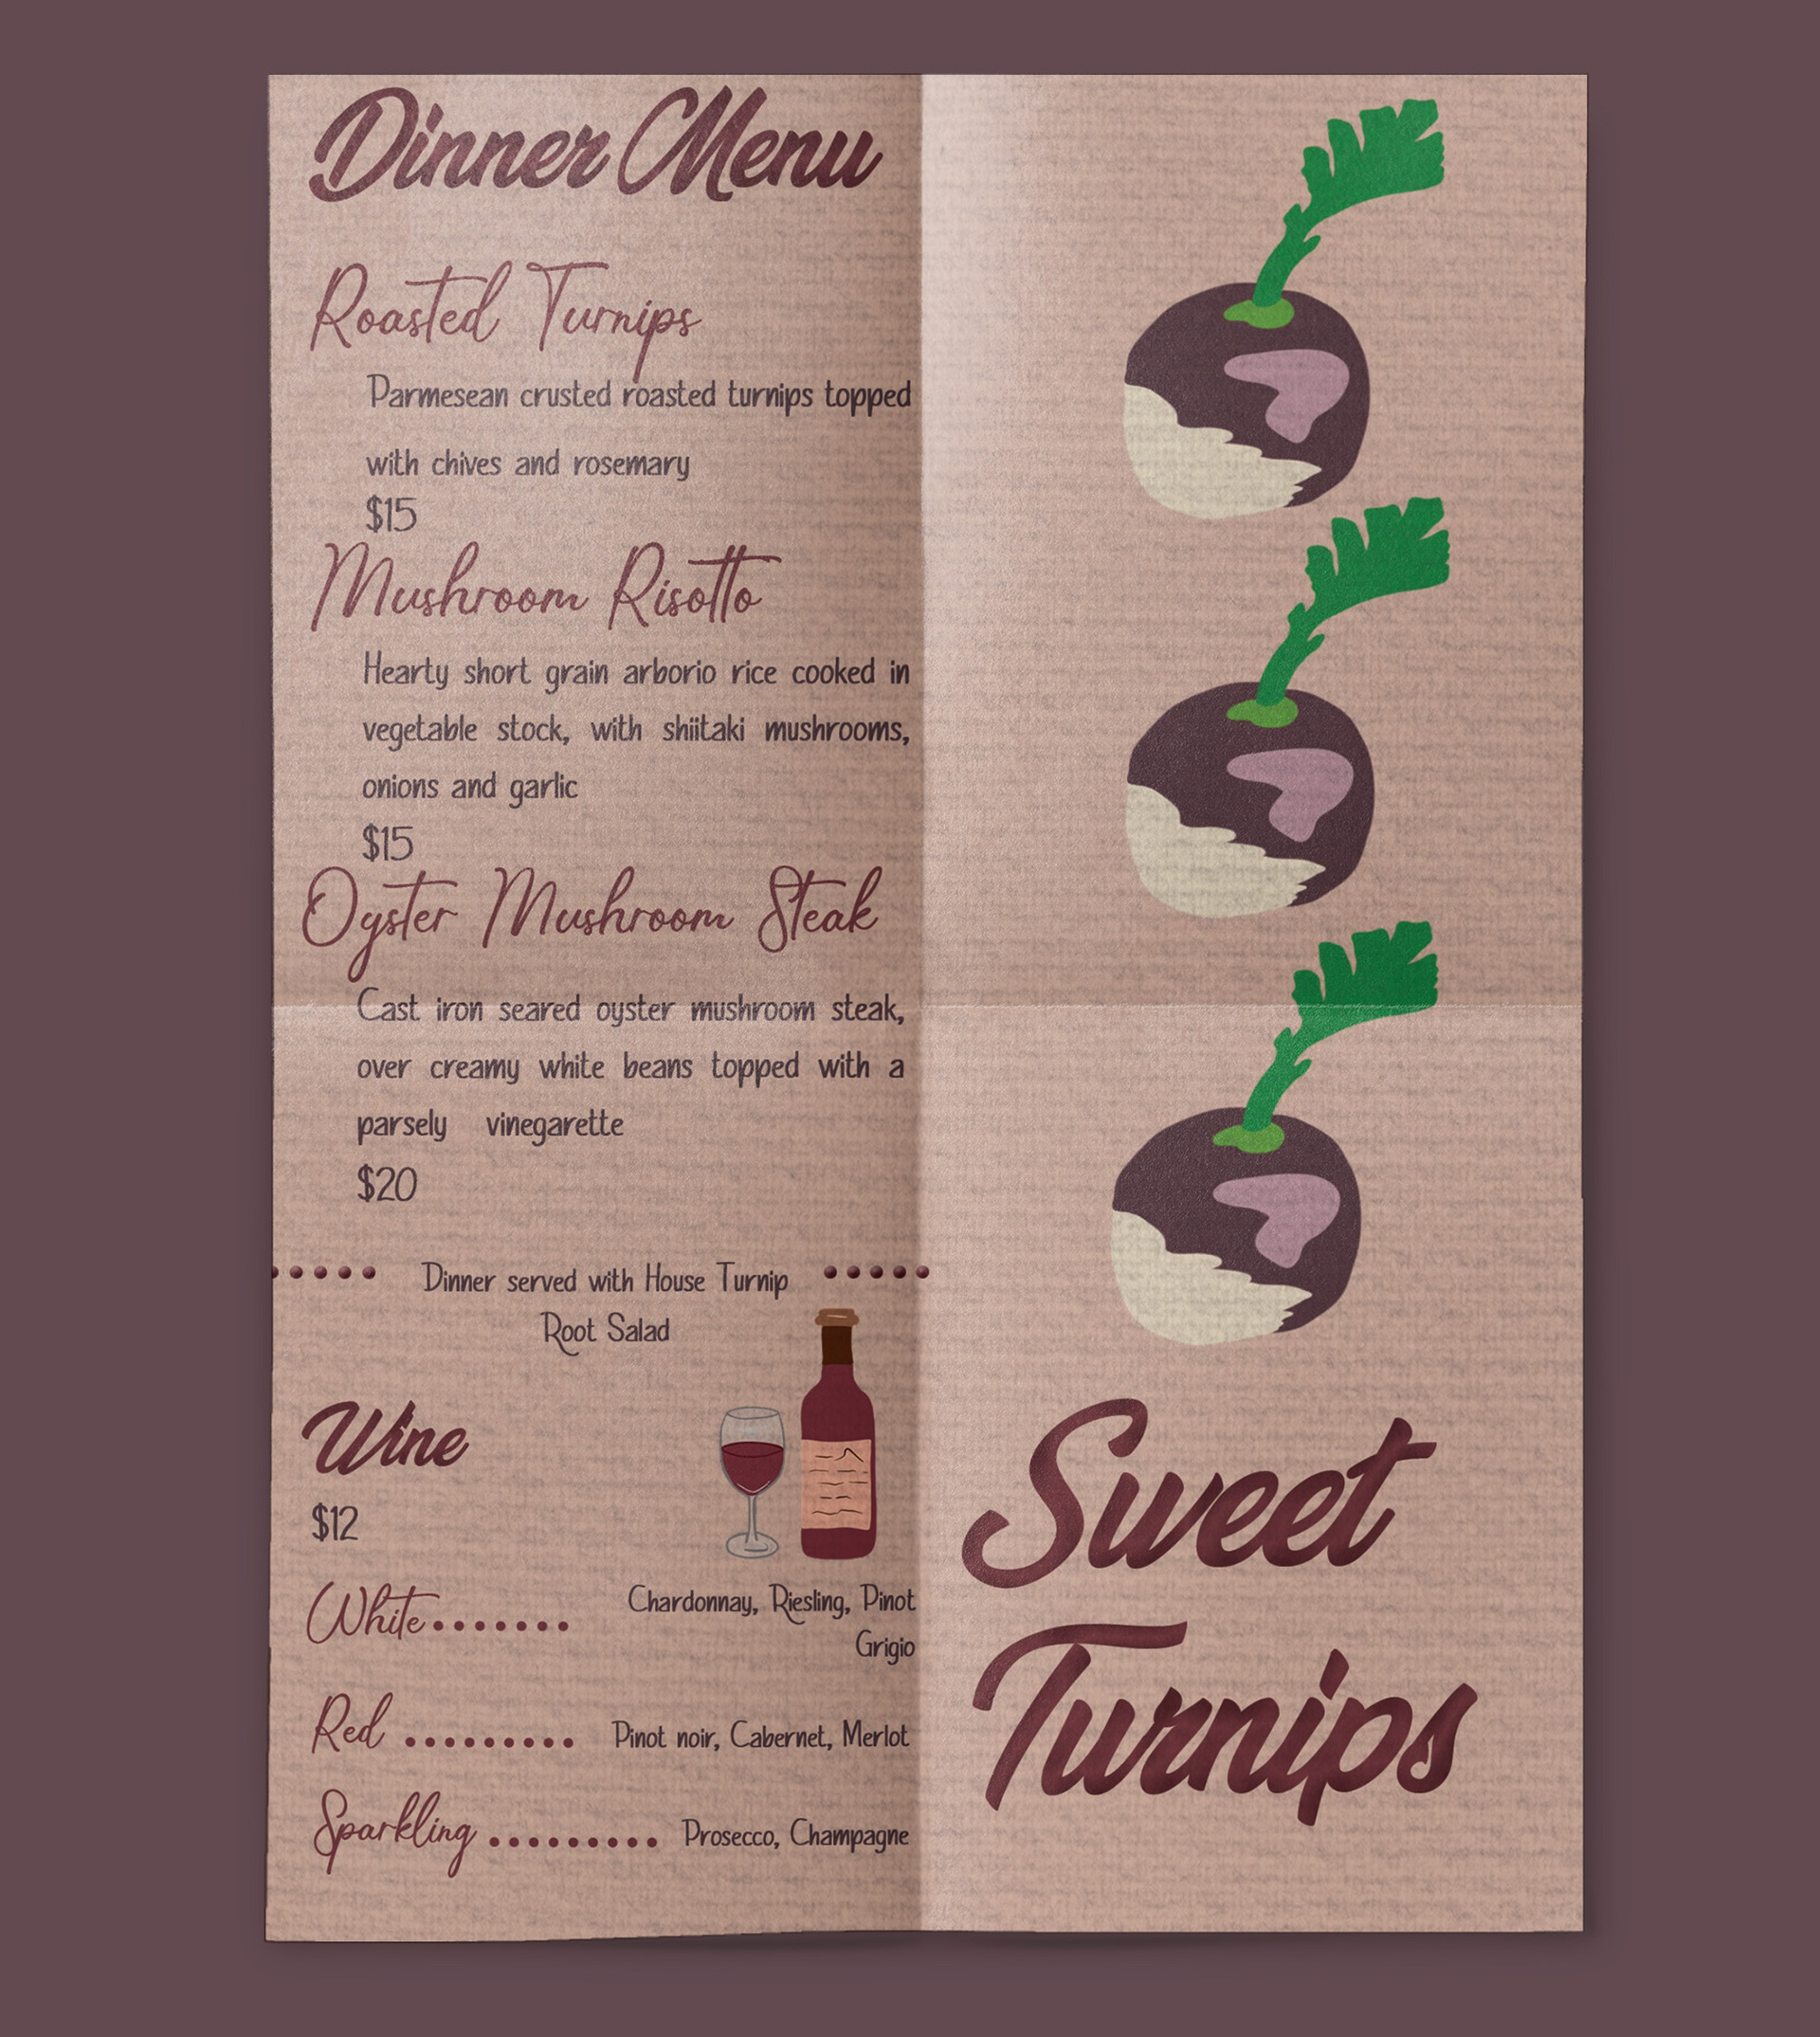 Dinner Menu
Roasted Turnips
Parmesean crusted roasted turnips topped
with chives and rosemary
$15
Mushroom Risotto
Hearty short grain arborio rice cooked in
vegetable stock, with shiitaki mushrooms,
onions and garlic
$15
Oyster Mushroom Steak
Cast iron seared oyster mushroom steak,
over creamy white beans topped with a
parsely vinegarette
$20
Dinner served with House Turnip
Root Salad
Wine
$12
White ....... Chardonnay, Riesling, Pinot
Grigio
Red ......... Pinot noir, Cabernet, Merlot
Sparkling ......... Prosecco, Champagne
Sweet
Turnips